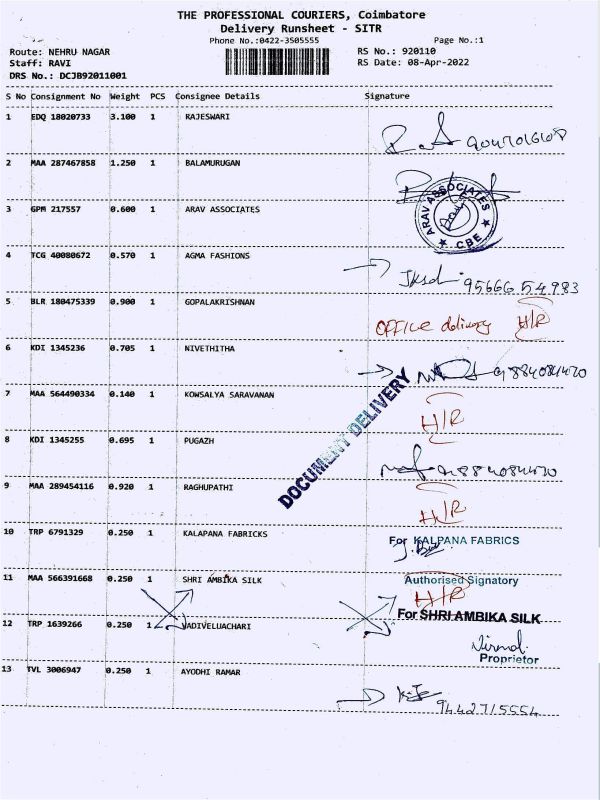 THE PROFESSIONAL COURIERS, Coimbatore
Delivery Runsheet - SITR
Phone No.:0422-3505555 Page No.:1
Route: NEHRU NAGAR RS No.: 920110
Staff: RAVI RS Date: 08-Apr-2022
DRS No.: DCJB92011001
S No Consignment No Weight PCS Consignee Details Signature
1 EDQ 18020733 3.100 1 RAJESWARI
2 MAA 287467858 1.250 1 BALAMURUGAN
3 GPM 217557 0.600 1 ARAV ASSOCIATES
ARAV ASSOCIATES
CBE
4 TCG 40080672 0.570 1 AGMA FASHIONS
95666 54983
5 BLR 180475339 0.900 1 GOPALAKRISHNAN
OFFICE delivery H/R
6 KDI 1345236 0.705 1 NIVETHITHA
7 MAA 564490334 0.140 1 KOWSALYA SARAVANAN
H/R
DOCUMENT DELIVERY
8 KDI 1345255 0.695 1 PUGAZH
9 MAA 289454116 0.920 1 RAGHUPATHI
H/R
10 TRP 6791329 0.250 1 KALAPANA FABRICKS
For KALPANA FABRICS
11 MAA 566391668 0.250 1 SHRI AMBIKA SILK
Authorised Signatory
H/R
For SHRI AMBIKA SILK
12 TRP 1639266 0.250 1 VADIVELUACHARI
Nirmal
Proprietor
13 TVL 3006947 0.250 1 AYODHI RAMAR
9442715554